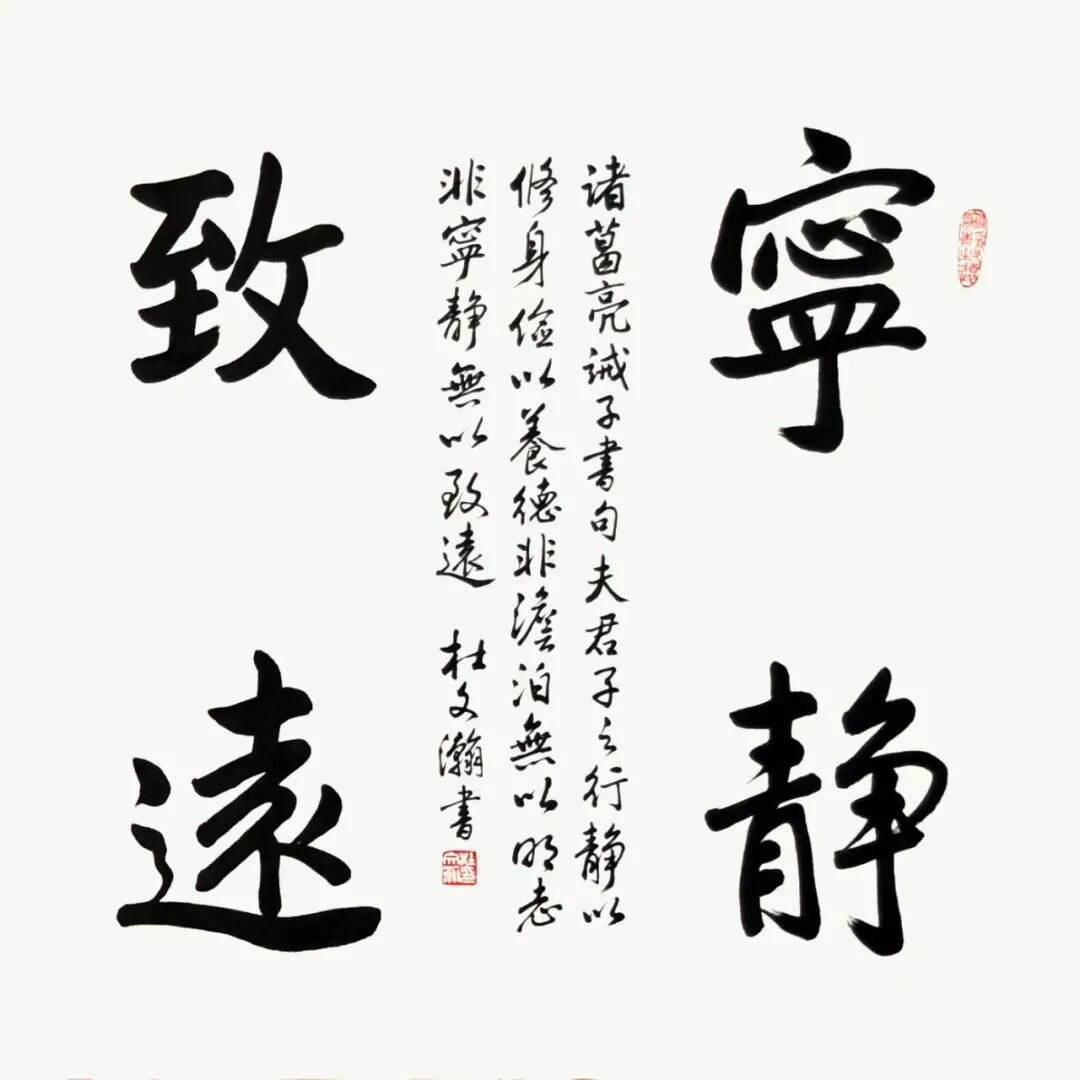 寧靜
致遠
诸葛亮诫子書句夫君子之行静以
修身俭以養德非澹泊無以明志
非寧静無以致遠 杜文瀚書